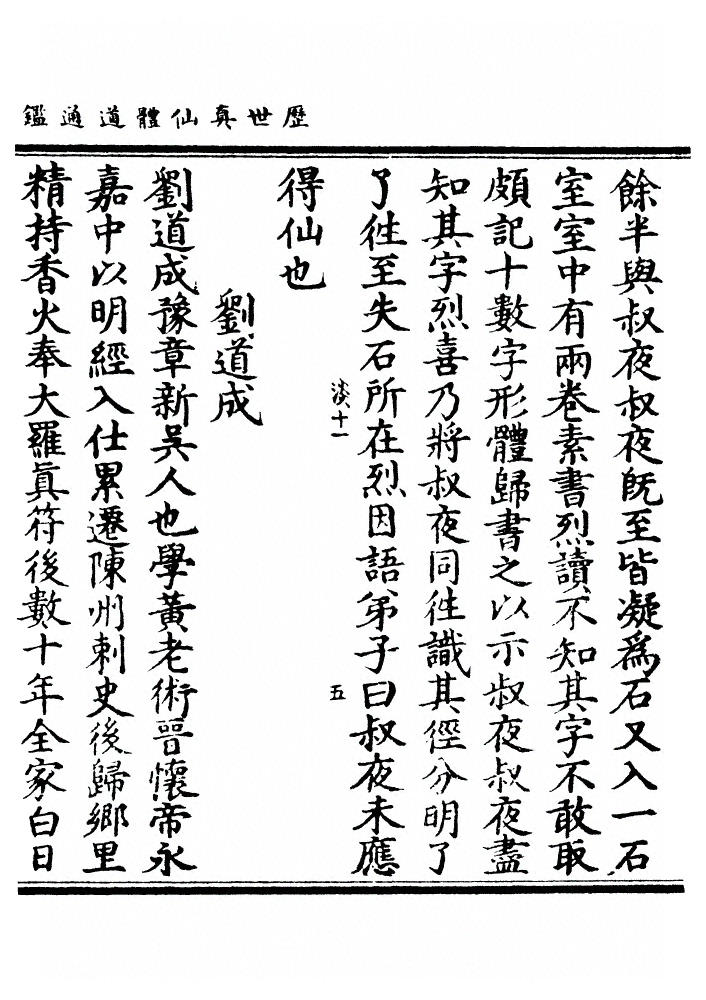 歷世真仙體道通鑑
餘半與叔夜叔夜旣至皆凝爲石又入一石
室室中有兩卷素書烈讀不知其字不敢取
頗記十數字形體歸書之以示叔夜叔夜盡
知其字烈喜乃將叔夜同徃識其徑分明了
了徃至失石所在烈因語弟子曰叔夜未應
淡十一
五
得仙也
劉道成
劉道成豫章新吳人也學黃老術晉懷帝永
嘉中以明經入仕累遷陳州刺史後歸鄉里
精持香火奉大羅眞符後數十年全家白日